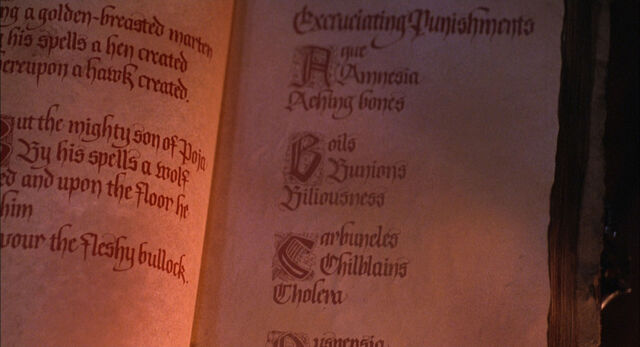 ng a golden-breasted marten
his spells a hen created
hereupon a hawk created.
But the mighty son of Poja
By his spells a wolf
ed and upon the floor he
him
vour the fleshy bullock.
Excruciating Punishments
Ague
Amnesia
Aching bones
Boils
Bunions
Biliousness
Carbuncles
Chilblains
Cholera
Dyspepsia